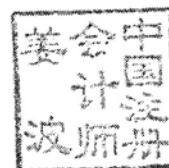 中国注册
会计师
姜波